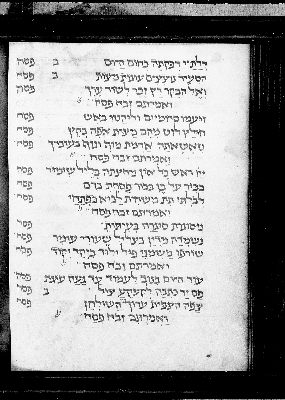 דלתיו דפקתה כחום היום ב פסח
הסעיד נוצצים עוגות מצות ב פסח
ואל הבקר רץ זכר לשור ערך פסח
ואמרתם זבח פסח
זועמו סדומיים ולוהטו באש פסח
חולץ לוט מהם ומצות אפה בקץ פסח
טאטאתה אדמת מוף ונוף בעוברך פסח
ואמרתם זבח פסח
יה ראש כל און מחצתה בליל שימור פסח
כביר על בן בכור פסחת בדם פסח
לבלתי תת משחית לבוא בפתחי פסח
ואמרתם זבח פסח
מסוגרת סוגרה בעיתותי פסח
נשמדה מדין בצליל שעורי עומר פסח
שורפו משמני פול ולוד ביקד יקוד פסח
ואמרתם זבח פסח
עוד היום בנוב לעמוד עד געה עונת פסח
פס יד כתבה לקעקע צול ב פסח
צפה הצפית ערוך השולחן פסח
ואמרתם זבח פסח